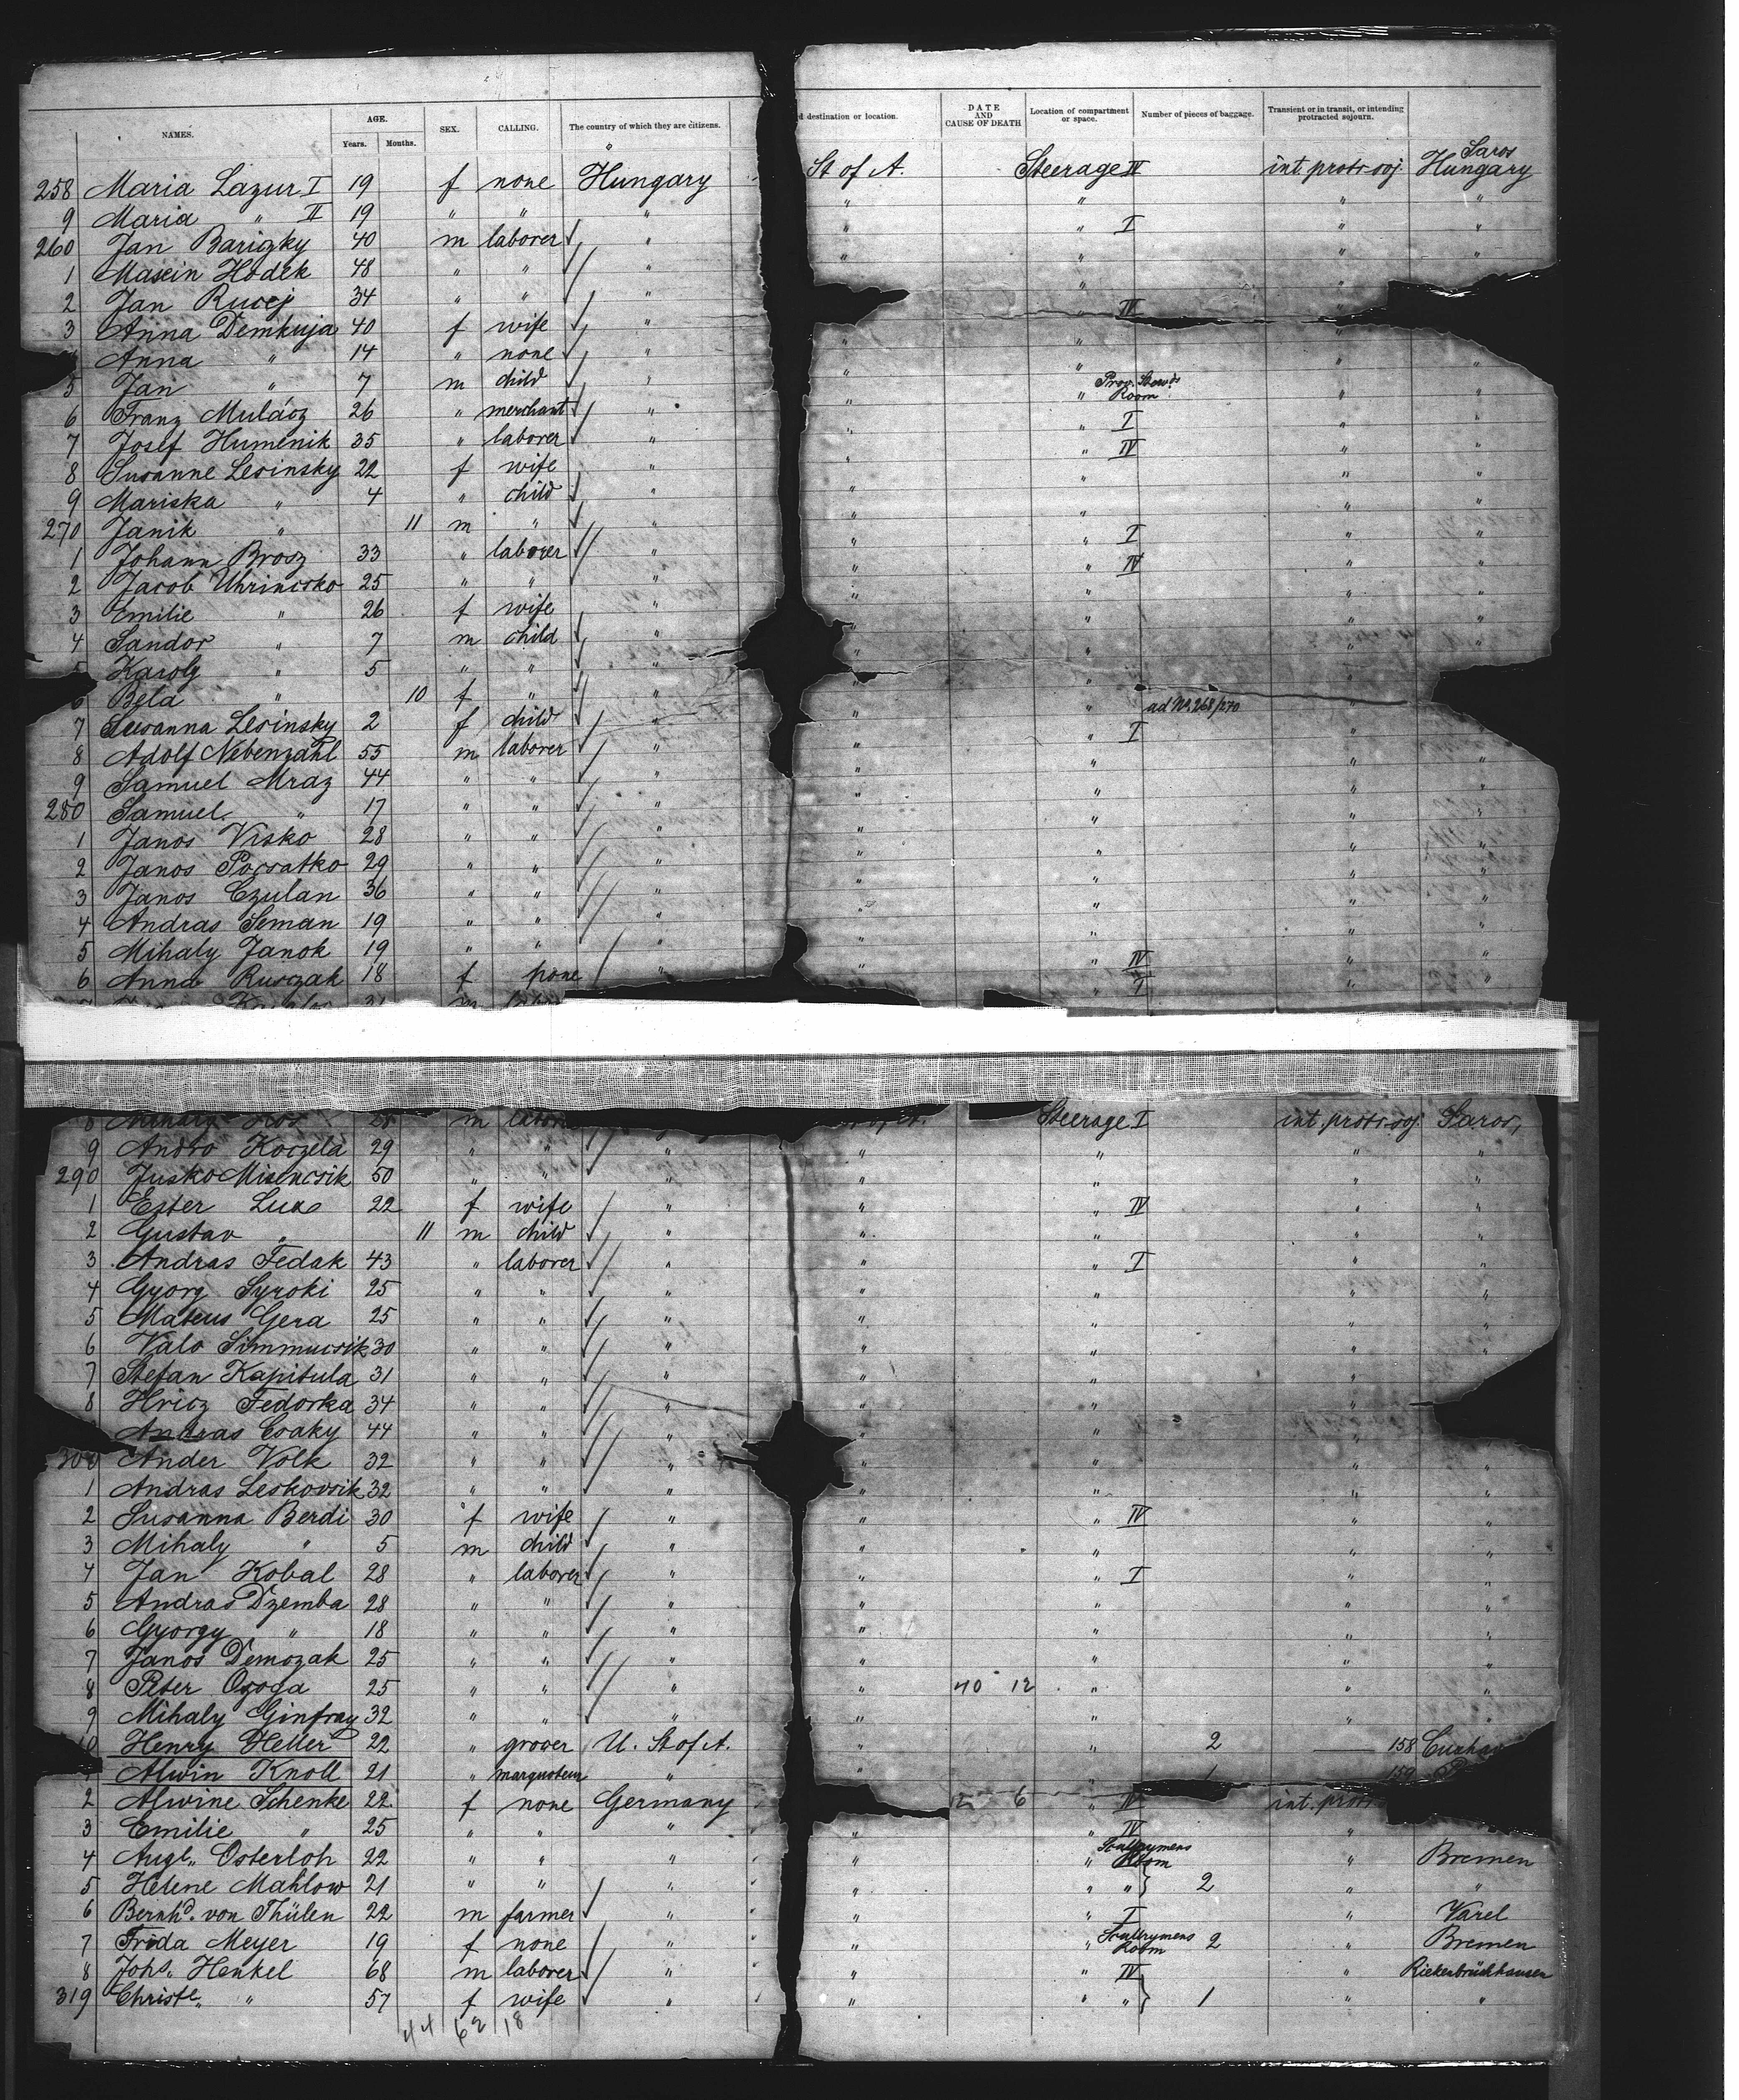 NAMES. AGE. Years. Months. SEX. CALLING. The country of which they are citizens. d destination or location. DATE AND CAUSE OF DEATH Location of compartment or space. Number of pieces of baggage. Transient or in transit, or intending protracted sojourn.
258 Maria Lazur I 19 f none Hungary St of A. Steerage IV int. protr. soj. Saros Hungary
9 Maria " II 19 " " " " " " "
260 Jan Barizky 40 m laborer " " " I " "
1 Hodek 48 " " " " " " "
2 Jan Rucej 34 " " " " "
3 Anna Demkuja 40 f wife " " IV "
Anna " 14 " none " " " "
5 Jan " 7 m child " " " " "
6 Franz Mulácz 26 " merchant " " " Prov. Stewds Room " "
7 Josef Humenik 35 " laborer " " " I " "
8 Susanne Lesinsky 22 f wife " " " IV " "
9 Mariska " 4 " child " " " " "
270 Janik " 11 m " " " " " "
1 Johann Brosz 33 " laborer " " " I " "
2 Jacob Uhrincsko 25 " " " " " IV " "
3 Emilie " 26 f wife " " " " "
4 Sandor " 7 m child " " " " "
5 Karoly " 5 " " " " " "
6 Bela " 10 f " " " " "
7 Susanna Lesinsky 2 f child " " " ad No 268/270 "
8 Adolf Nebenzahl 55 m laborer " " " I " "
9 Samuel Mraz 44 " " " " " " "
280 Samuel " 17 " " " " " " "
1 Janos Visko 28 " " " " " " "
2 Janos Pocsatko 29 " " " " " " "
3 Janos Czulan 36 " " " " " " "
4 Andras Seman 19 " " " " " " "
5 Mihaly Janok 19 " " " " " " "
6 Anna Rusczak 18 f none " " " IV " "
31 m " I " "
8 28 m Steerage I int. protr. soj. Saros,
9 Andro Koczela 29 " " " " " " "
290 Jusko Misencsik 50 " " " " " " "
1 Ester Lux 22 f wife " " " IV " "
2 Gustav " 11 m child " " " " "
3 Andras Fedak 43 " laborer " " " I " "
4 Gyorg Syroki 25 " " " " " " "
5 Mateus Gera 25 " " " " " " "
6 Valo Simmucsik 30 " " " " " " "
7 Stefan Kapitula 31 " " " " " "
8 Hricz Fedorka 34 " " " " " "
Andras Csaky 44 " " " " " "
300 Ander Volk 32 " " " " " " "
1 Andras Leskovsik 32 " " " " " " "
2 Susanna Berdi 30 f wife " " " IV " "
3 Mihaly " 5 m child " " " " "
4 Jan Kobal 28 " laborer " " " I " "
5 Andras Dzemba 28 " " " " " " "
6 Gyorgy " 18 " " " " " " "
7 Janos Demczak 25 " " " " " " "
8 Peter Ozoga 25 " " " " 40 12 " " "
9 Mihaly Ginfray 32 " " " " " " "
10 Henry Heller 22 " grocer U. St of A. " " 2 — 158
Alwin Knoll 21 " " " " 1 159
2 Alwine Schenke 22 f none Germany 12 6 " IV int. protr.
3 Emilie " 25 " " " " " IV "
4 Augte. Osterloh 22 " " " " " Room " Bremen
5 Helene Mahlow 21 " " " " " " } 2 " "
6 Bernhd. von Thülen 22 m farmer " " " I " Varel
7 Frida Meyer 19 f none " " " Room 2 " Bremen
8 Johs. Henkel 68 m laborer " " " IV " Riekenbrüchhausen
319 Christe. " 57 f wife " " " " } 1 " "
44 62 18